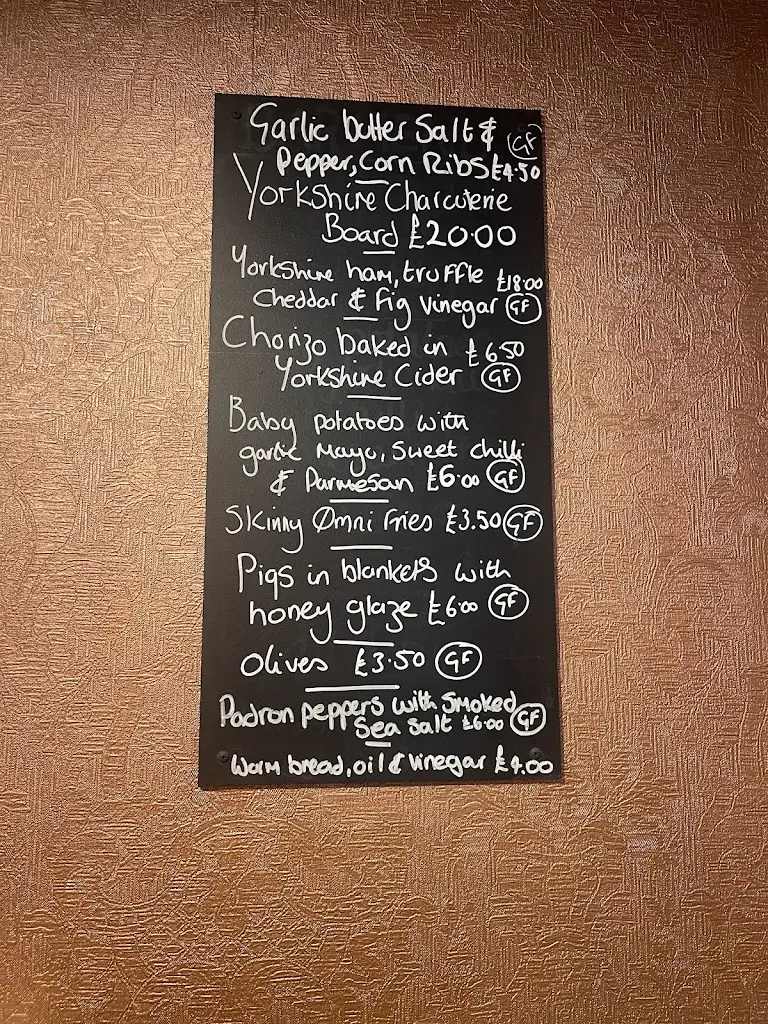 Garlic butter Salt &
Pepper, Corn Ribs £4.50 GF
Yorkshire Charcuterie
Board £20.00
Yorkshire ham, truffle £18.00
Cheddar & Fig Vinegar GF
Chorizo baked in £6.50
Yorkshire Cider GF
Baby potatoes with
garlic Mayo, Sweet chilli
& Parmesan £6.00 GF
Skinny Omni Fries £3.50 GF
Pigs in blankets with
honey glaze £6.00 GF
Olives £3.50 GF
Padron peppers with Smoked
Sea Salt £6.00 GF
Warm bread, oil & Vinegar £4.00